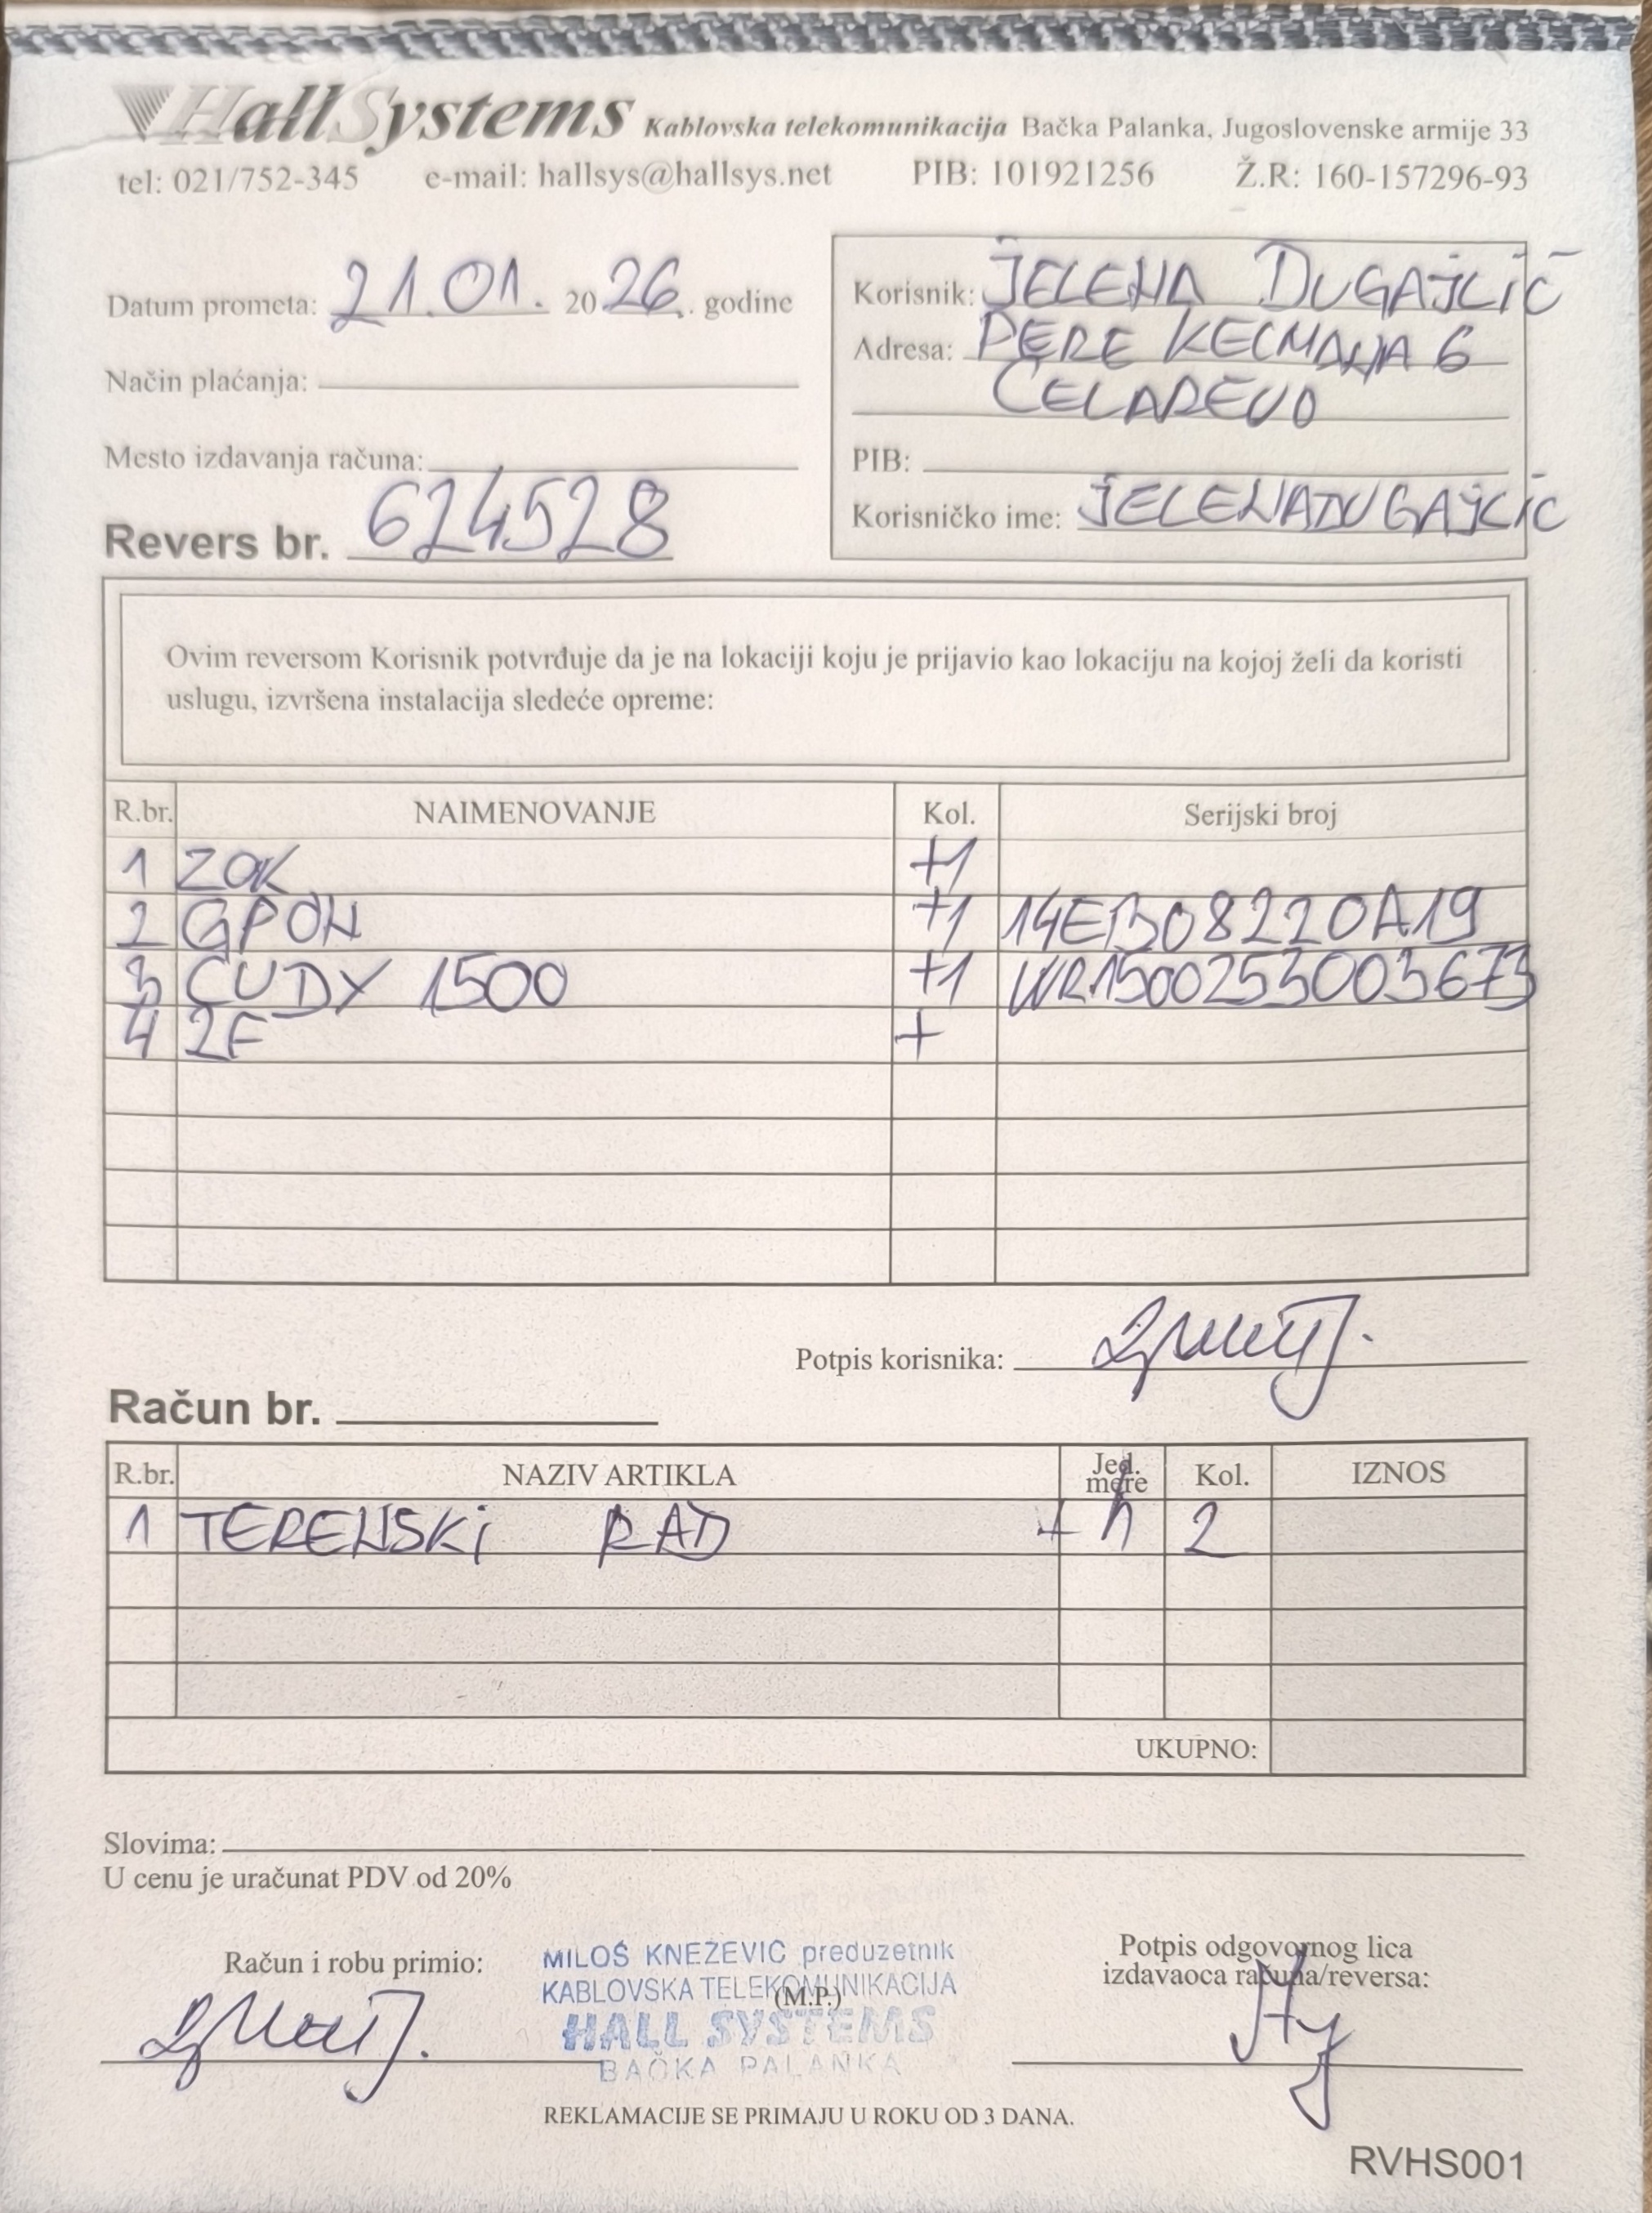 HallSystems Kablovska telekomunikacija Bačka Palanka, Jugoslovenske armije 33
tel: 021/752-345 e-mail: hallsys@hallsys.net PIB: 101921256 Ž.R: 160-157296-93
Datum prometa: 21.01. 2026. godine
Način plaćanja:
Mesto izdavanja računa:
Revers br. 624528
Korisnik: JELENA DUGAJLIĆ
Adresa: PERE KECMANA 6
ČELAREVO
PIB:
Korisničko ime: JELENADUGAJLIC
Ovim reversom Korisnik potvrđuje da je na lokaciji koju je prijavio kao lokaciju na kojoj želi da koristi
uslugu, izvršena instalacija sledeće opreme:
R.br. NAIMENOVANJE Kol. Serijski broj
1 ZOK +1
2 GPON +1 14EB08220A19
3 CUDY 1500 +1 WR1500253003673
4 2F +
Potpis korisnika:
Račun br.
R.br. NAZIV ARTIKLA Jed. mere Kol. IZNOS
1 TERENSKI RAD + h 2
UKUPNO:
Slovima:
U cenu je uračunat PDV od 20%
Račun i robu primio:
MILOŠ KNEŽEVIĆ preduzetnik
KABLOVSKA TELEKOMUNIKACIJA
(M.P.)
HALL SYSTEMS
BAČKA PALANKA
Potpis odgovornog lica
izdavaoca računa/reversa:
REKLAMACIJE SE PRIMAJU U ROKU OD 3 DANA.
RVHS001